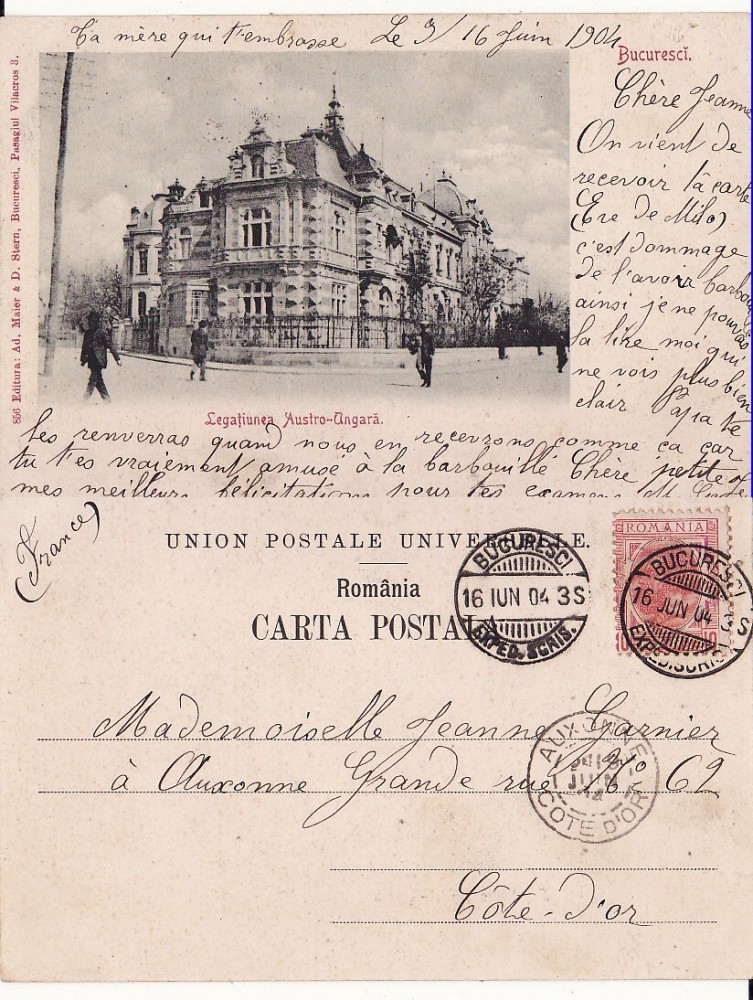 Ta mère qui t'embrasse Le 3/16 Juin 1904
Bucuresci.
856 Editura: Ad. Maier & D. Stern, Bucuresci, Pasagiul Vilacros 3.
Chère Jeanne
On vient de
recevoir ta carte
(Ere de Milo)
c'est dommage
de l'avoir
ainsi je ne pouvais
la lire moi qui
ne vois plus bien
clair Papa te
Legațiunea Austro-Ungară.
les renverras quand nous en recevrons comme ça car
tu t'es vraiment amusé à la barbouillé Chère petite
mes meilleurs félicitations pour tes examens
(France)
UNION POSTALE UNIVERSELLE.
România
CARTA POSTALA
BUCURESCI
16 IUN 04 3S
EXPED. SCRIS.
ROMANIA
10
BUCURESCI
16 JUN 04 S
EXPED. SCRIS.
Mademoiselle Jeanne Garnier
à Auxonne Grande rue No 62
AUXONNE
JUIN
04
COTE D'OR
Côte-d'or